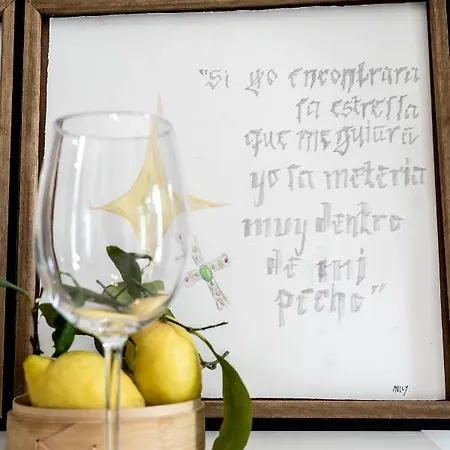 "Si yo encontrara
la estrella
que me guiara
yo la meteria
muy dentro
de mi
pecho"
MILLY